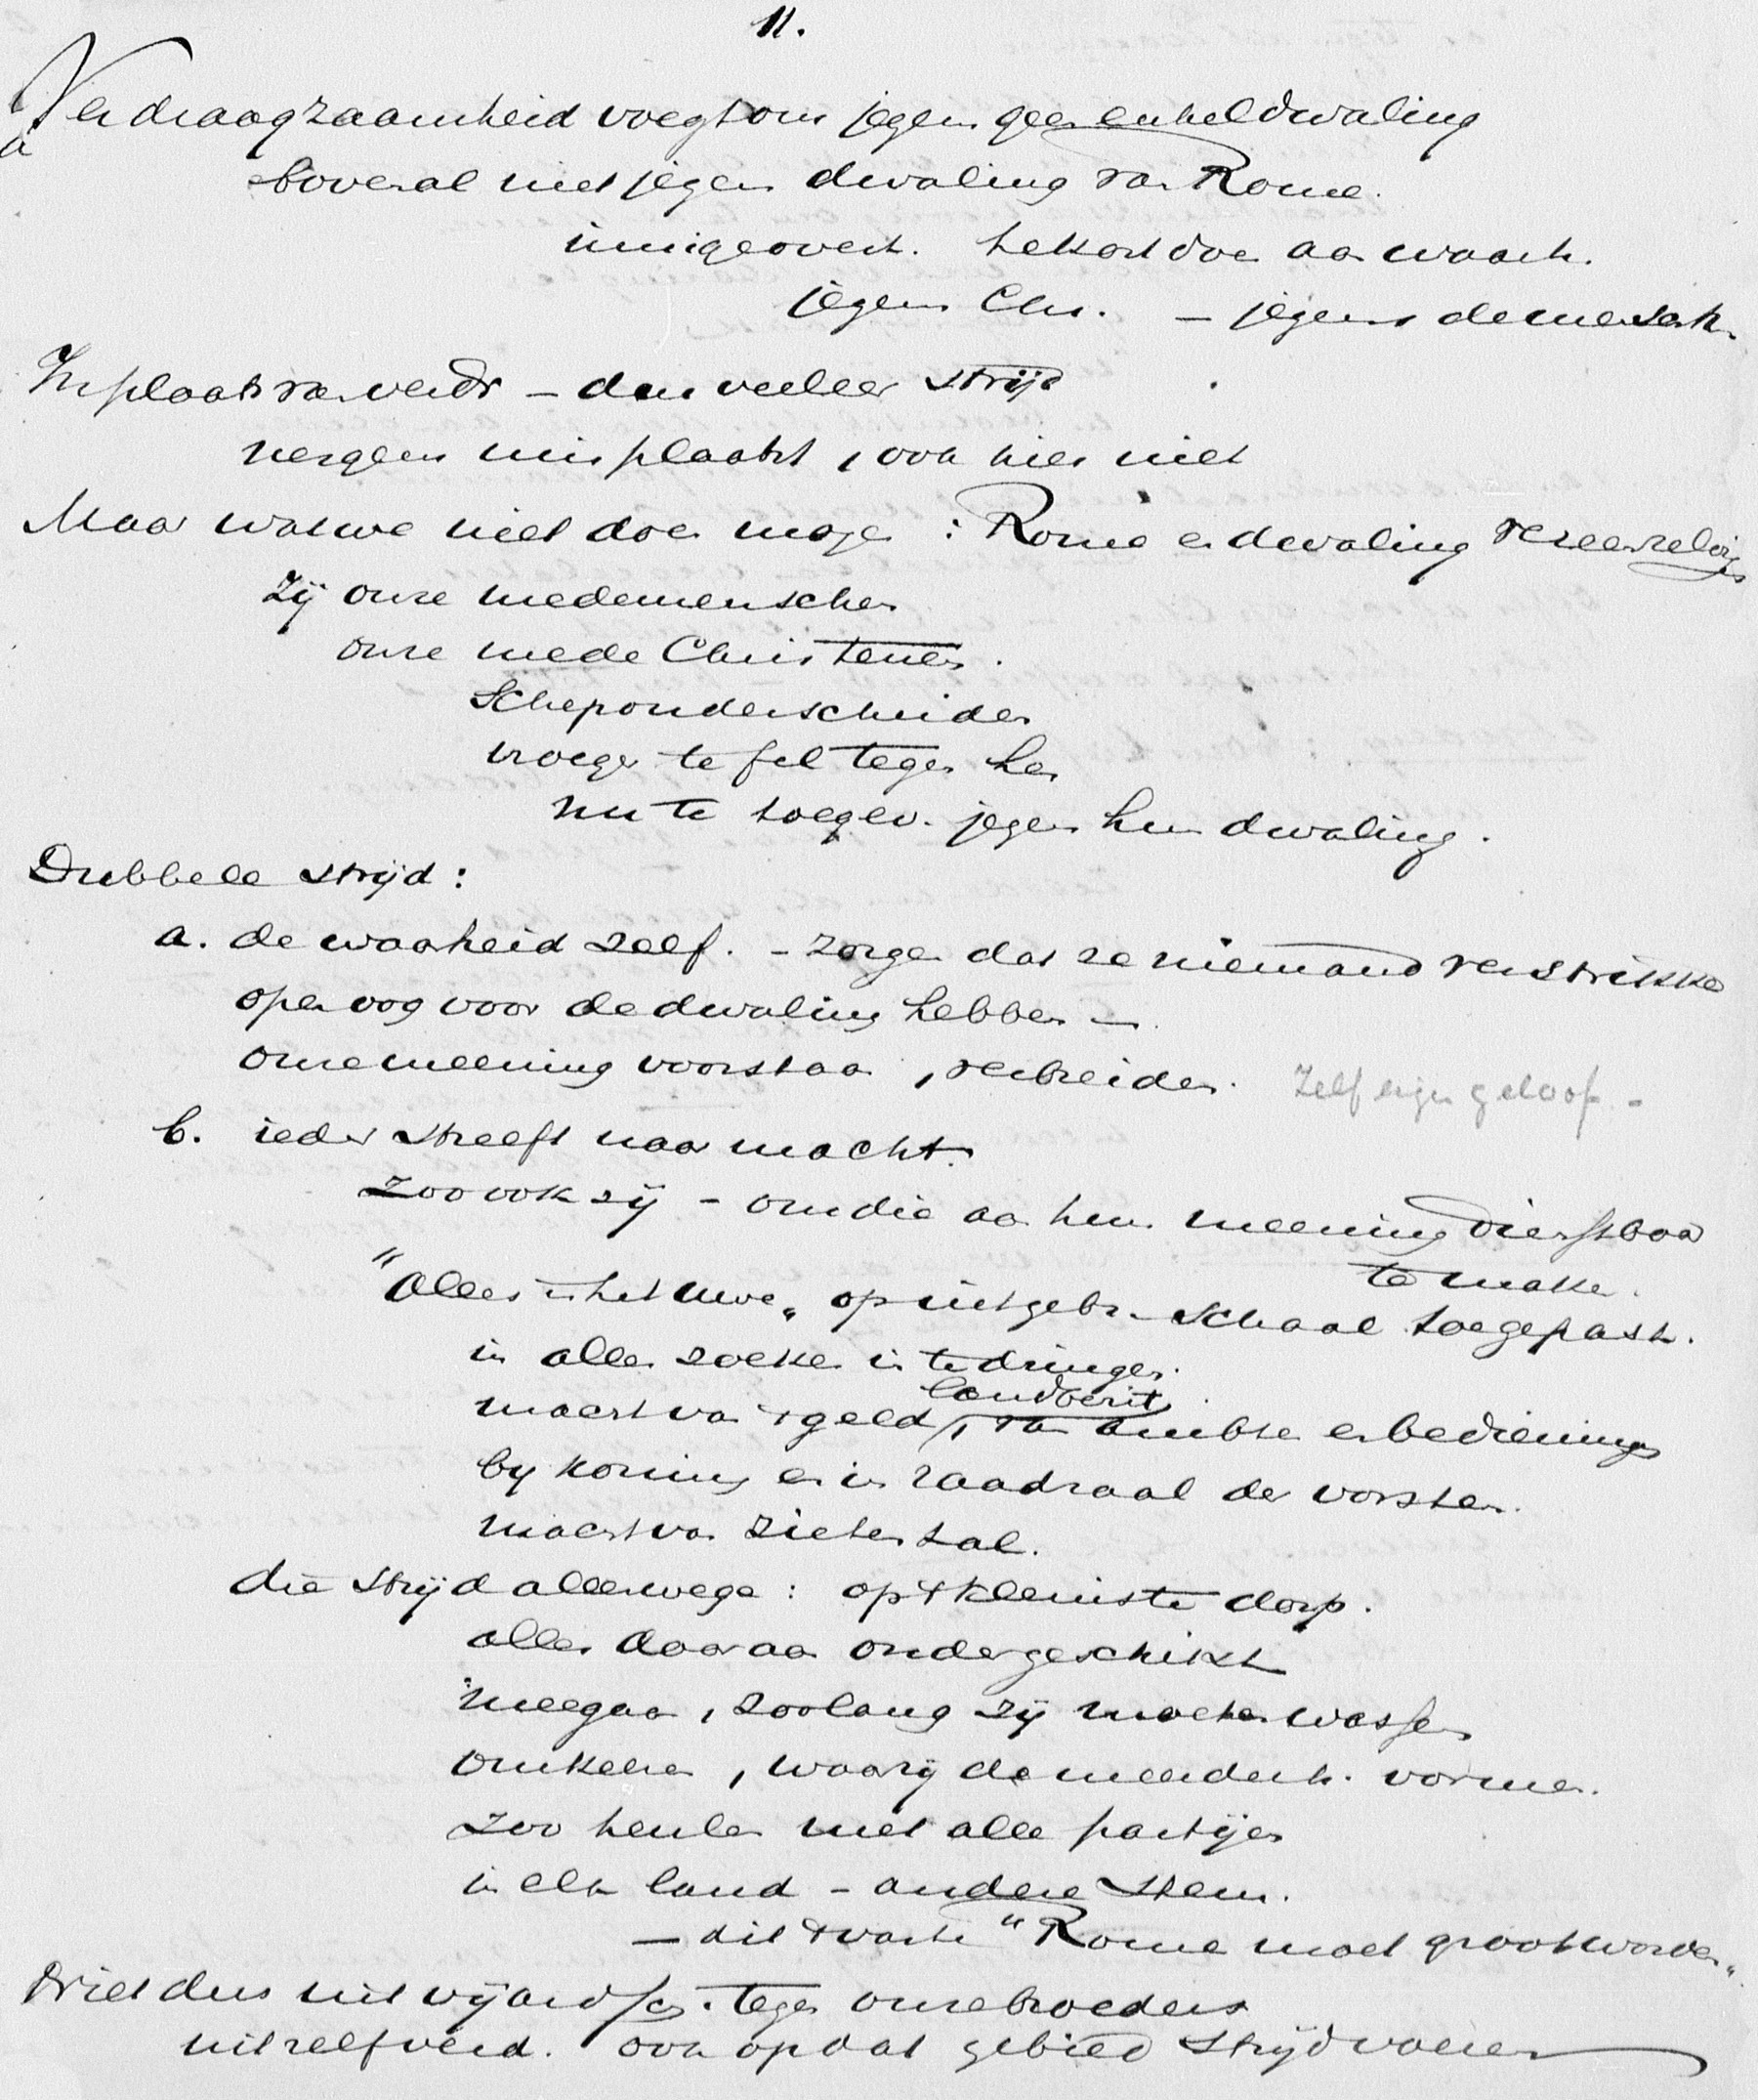 11.
Verdraagzaamheid voegt ons jegens geen enkel dwaling
a
bovenal niet jegens dwaling van Rome.
innige overt. tekort doen aan waarh.
jegens Chr. – jegens de mensch.
In plaats van verdr – dus veeleer strijd
nergens misplaatst, ook hier niet
Maar wat we niet doen mogen : Rome en dwaling vereenzelvigen
Zij onze medemenschen
onze mede Christenen.
Scherp onderscheiden
vroeger te fel tegen hen
nu te toegev. jegens hun dwaling.
Dubbele strijd :
a. de waarheid zelf. – zorgen dat ze niemand verstrikke
open oog voor de dwaling hebben –
onze meening voorstaan, verbreiden. Zelf eigen geloof. –
b. ieder streeft naar macht.
Zoo ook zij – om die aan hun meening dienstbaar
te maken.
"Alles is het uwe" op uitgebr. schaal toegepast.
in alles zoeken in te dringen.
landbezit
macht van 't geld, van ambten en bedieningen
by koning en in raadzaal der vorsten.
macht van zielental.
die strijd allerwege : op 't kleinste dorp.
alles daaraan ondergeschikt
meegaan, zoolang zij moeten wassen
omkeeren, waar zij de meerderh. vormen.
zoo heulen met alle partijen
in elk land – andere stem.
– dit 't vaste "Rome moet groot worden"
Niet dus uit vijandsch. tegen onze broeders
uit zelfverd. ook op dat gebied strijd voeren